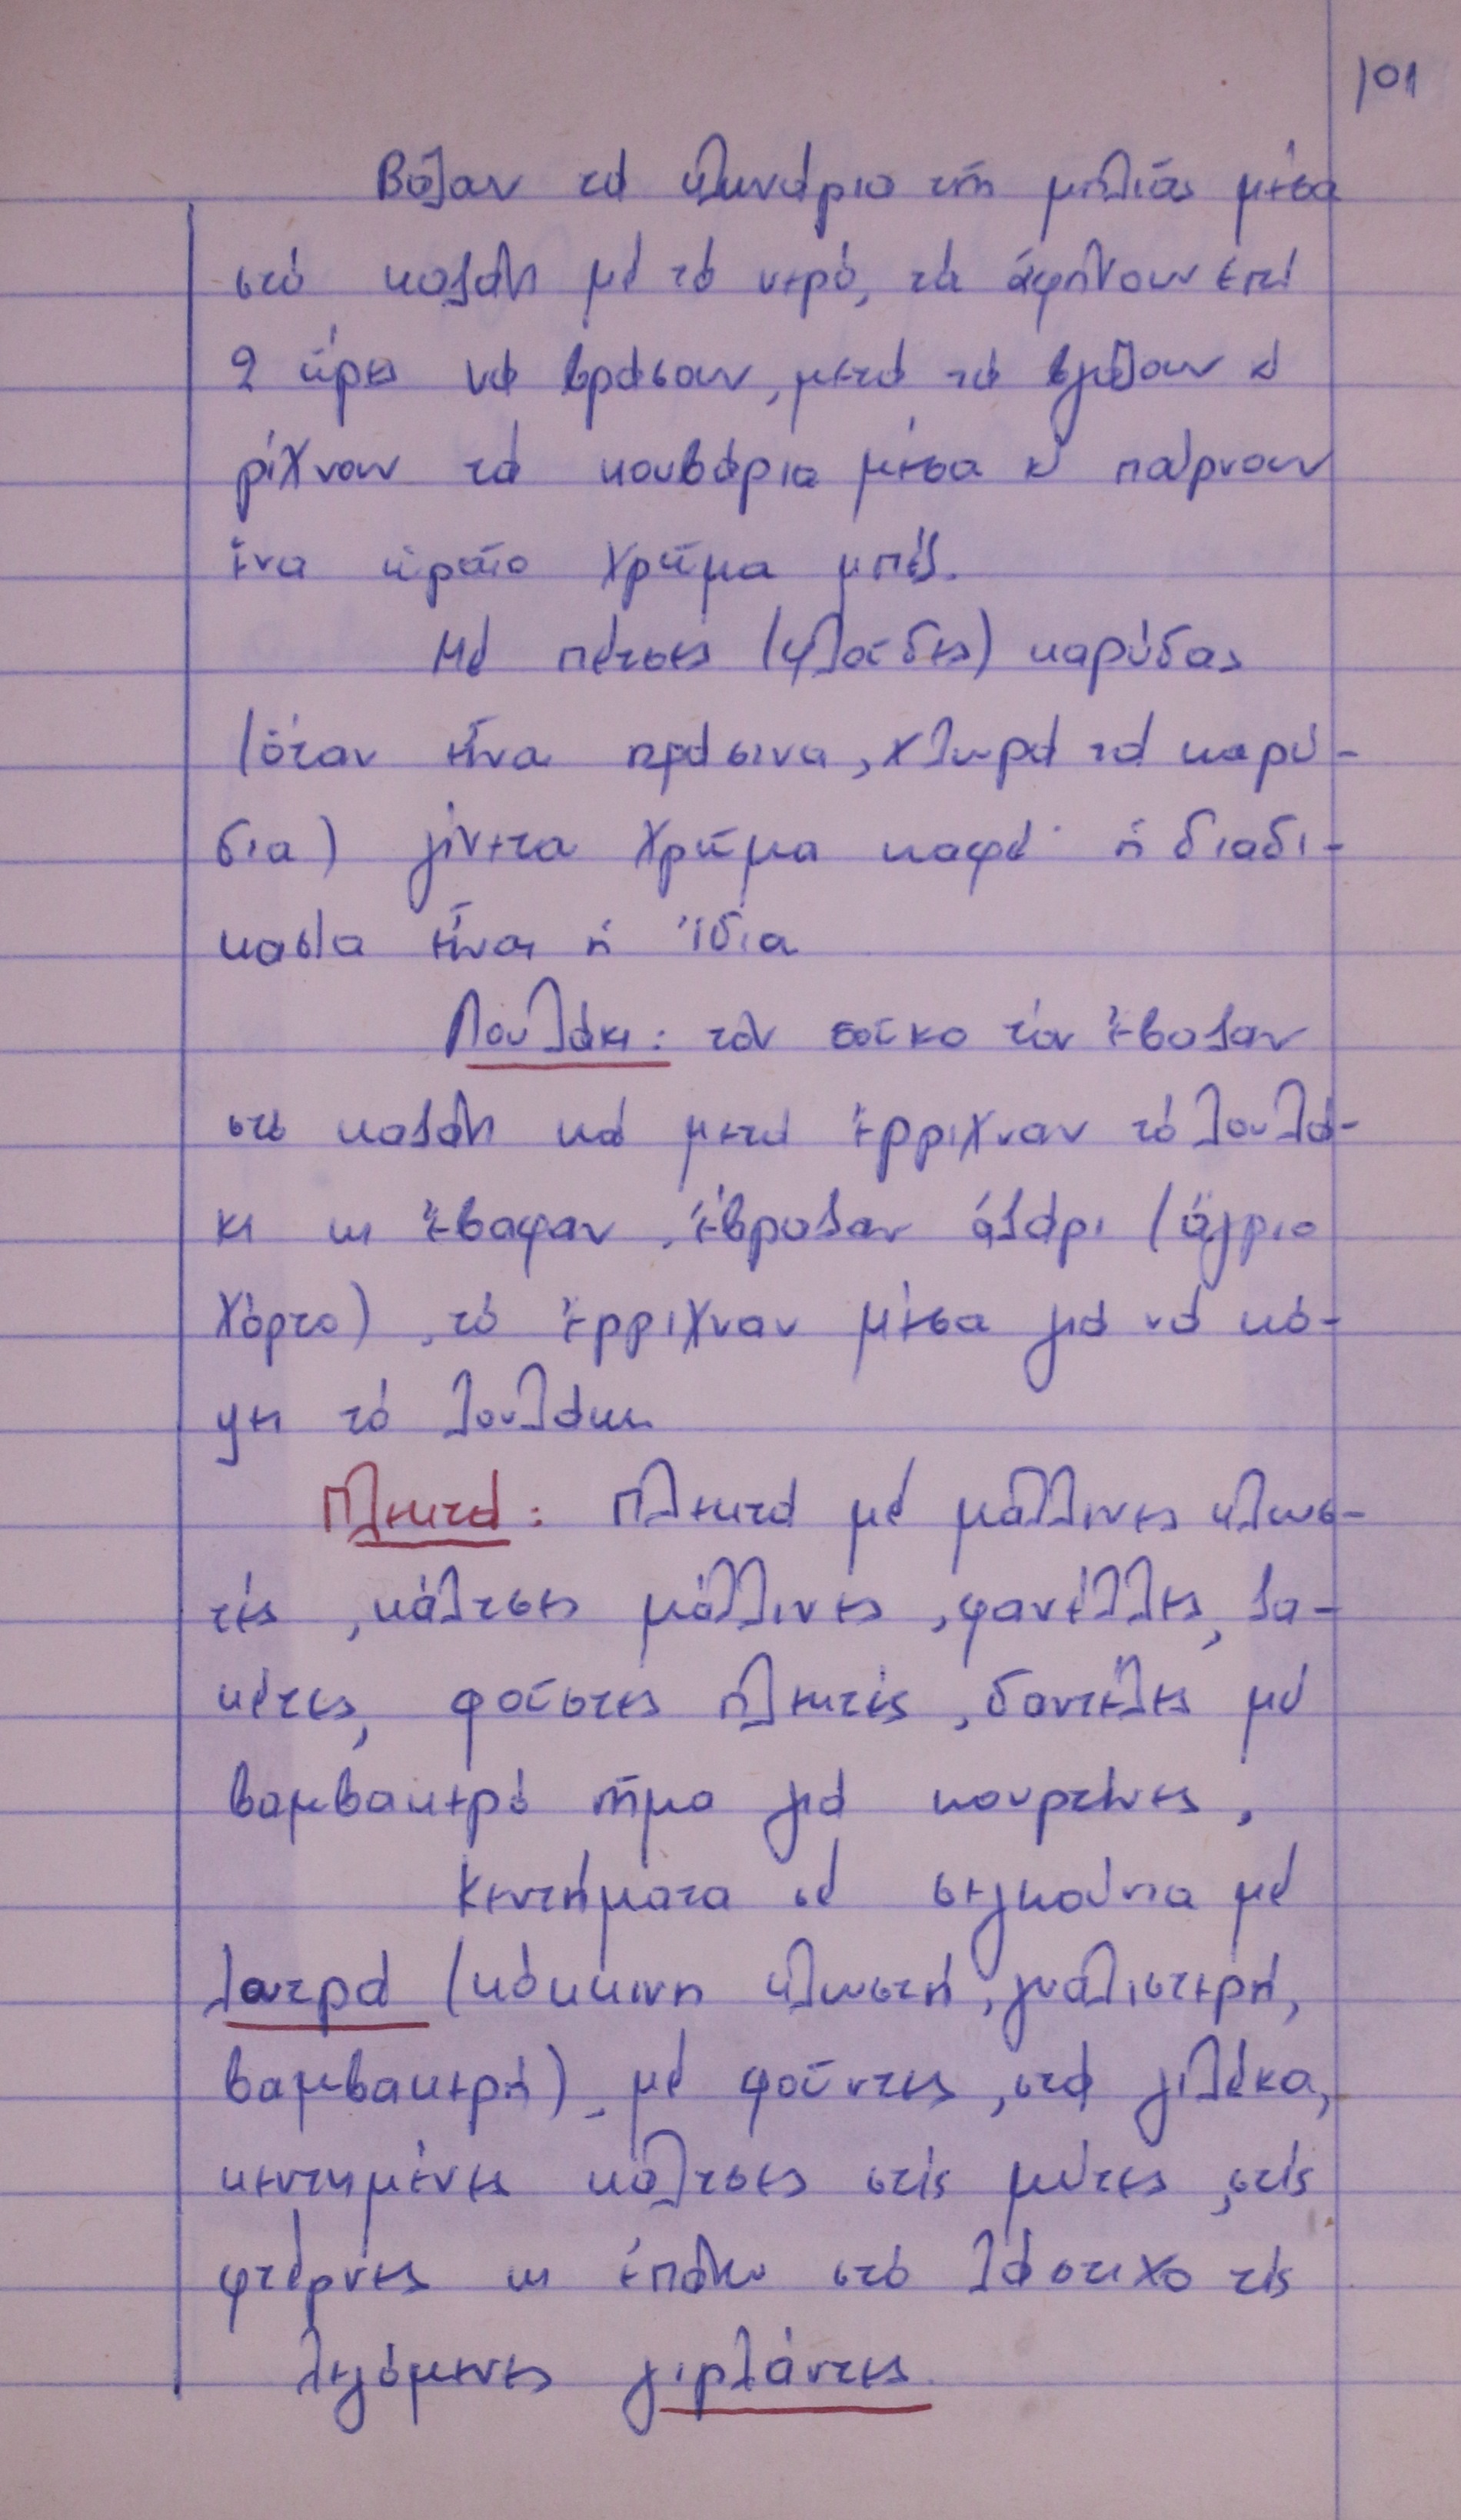 101
Βάζαν τά κλωνάρια τῆς μηλιᾶς μέσα
στό καζάνι μέ τό νερό, τά ἀφήνουν ἐπί
2 ὧρες νά βράσουν, μετά τά βγάζουν κ'
ρίχνουν τά κουβάρια μέσα κ' παίρνουν
ἕνα ὡραῖο χρῶμα μπέζ.
Μέ πέτσες (φλοῦδες) καρύδας
(ὅταν εἶναι πράσινα, χλωρά τά καρύ-
δια) γίνεται χρῶμα καφέ· ἡ διαδι-
κασία εἶναι ἡ ἴδια
Λουλάκι: τόν τόν ἔβαζαν
στό καζάνι καί μετά ἔρριχναν τό λουλά-
κι κι ἔβαφαν, ἔβραζαν ἀζάρι (ἄγριο
χόρτο), τό ἔρριχναν μέσα γιά νά κό-
ψει τό λουλάκι.
Πλεκτά: Πλεκτά μέ μάλλινες κλωσ-
τές, κάλτσες μάλλινες, φανέλλες, ζα-
κέτες, φοῦστες πλεκτές, δαντέλες μέ
βαμβακερό νῆμα γιά κουρτίνες.
Κεντήματα σέ σεγκούνια μέ
λατρά (κόκκινη κλωστή, γυαλιστερή,
βαμβακερή), μέ φοῦντες, στά γιλέκα,
κεντημένες κάλτσες στίς μύτες, στίς
φτέρνες κι ἐπάνω στό λάστιχο τίς
λεγόμενες γιρλάντες.